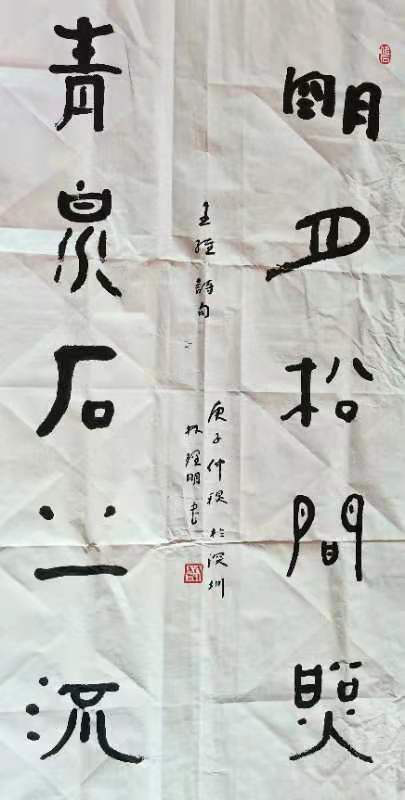 明月松間照
青泉石上流
王維詩句
庚子仲秋於深圳
林明书